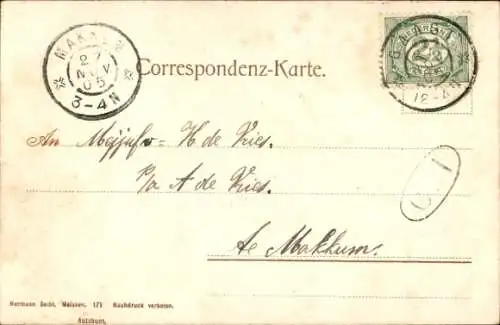 MAKKUM
27
NOV
05
3-4N
Correspondenz-Karte.
2½
12-4N
An Mejjufr= H. de Vries.
P/a A de Vries.
te Makkum.
Hermann Seibt, Meissen, 171 Nachdruck verboten.